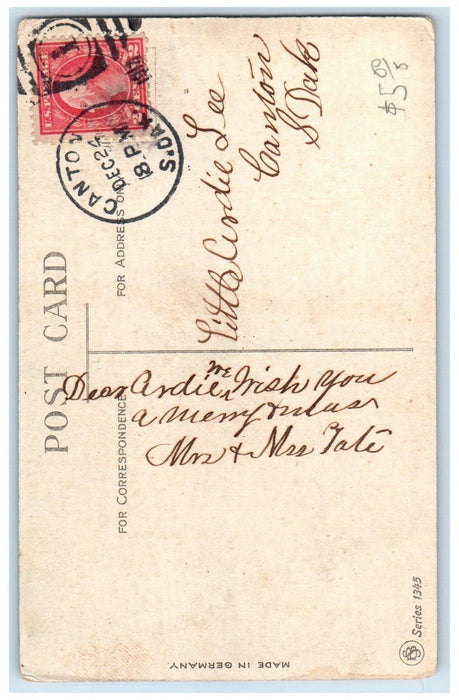 POST CARD
FOR CORRESPONDENCE
FOR ADDRESS ON
U.S. POSTAGE
CANTON
DEC 24
8 PM
S. DAK
Little Ardie Lee
Canton
S Dak
Dear Ardie we Wish you
a merry xmas
Mrs & Mrs Tate
MADE IN GERMANY.
Series 1345
$5